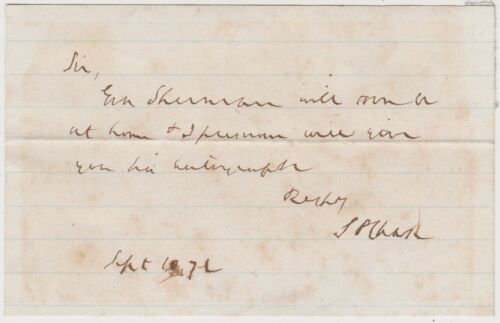 Sir,
Gen Sherman will soon be
at home & I presume will give
you his autograph
Respy
S P Chase
Sept 72